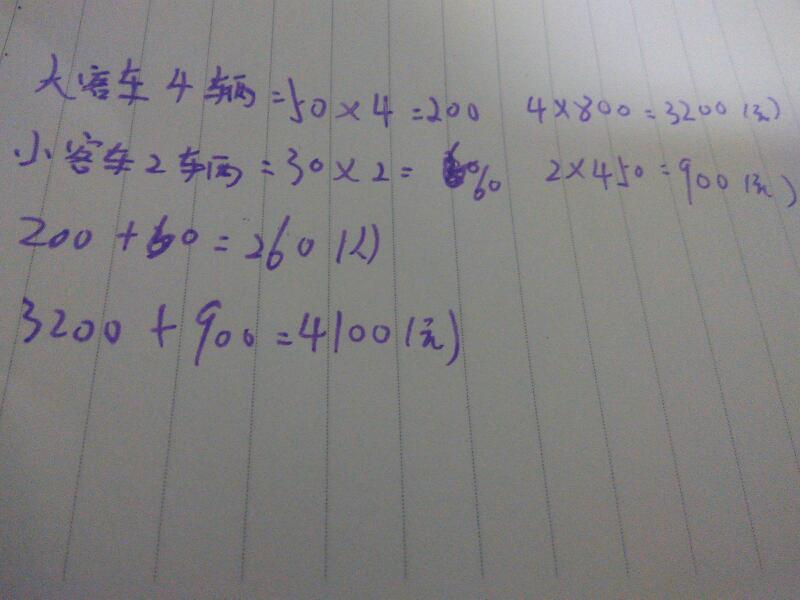 大客车4辆=50×4=200 4×800=3200(元)
小客车2辆=30×2=60 2×450=900(元)
200+60=260(人)
3200+900=4100(元)